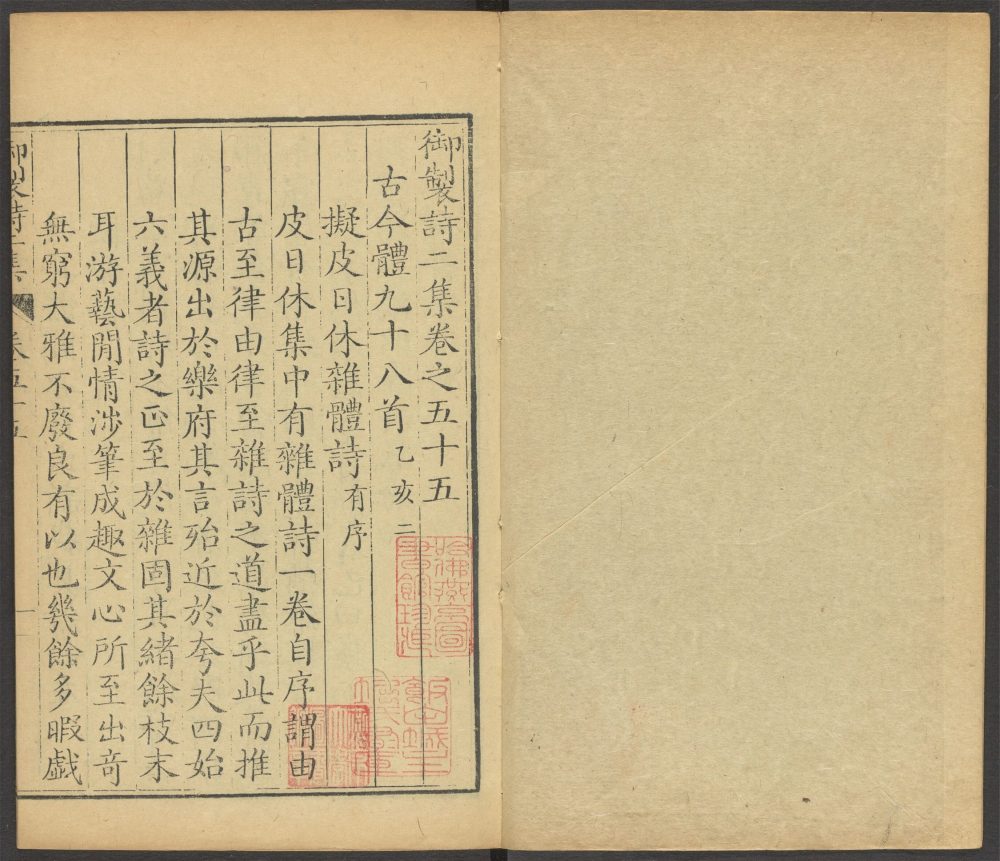 御製詩二集卷之五十五
古今體九十八首乙亥二
擬皮日休雜體詩有序
皮日休集中有雜體詩一卷自序謂由
古至律由律至雜詩之道盡乎此而推
其源出於樂府其言殆近於夸夫四始
六義者詩之正至於雜固其緒餘枝末
耳游藝閒情涉筆成趣文心所至出奇
無窮大雅不廢良有以也幾餘多暇戲
御製詩二集 卷五十五 一
哈佛燕京圖書館珍藏